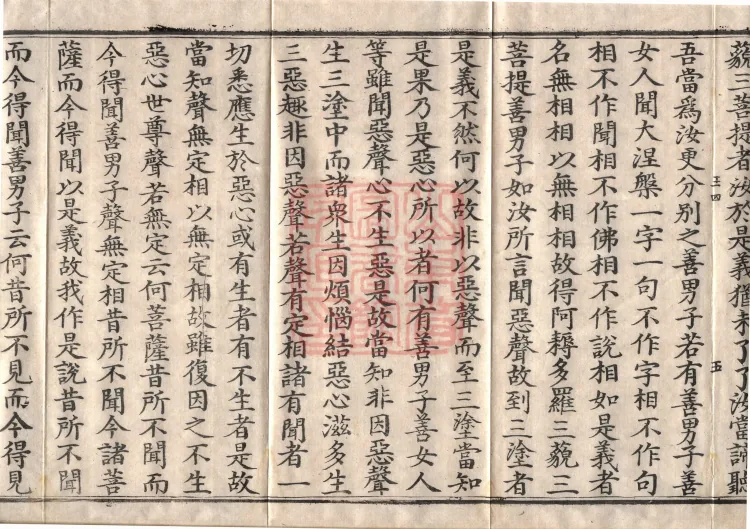 藐三菩提者汝於是義猶未了了汝當諦聽
吾當爲汝更分別之善男子若有善男子善
女人聞大涅槃一字一句不作字相不作句
相不作聞相不作佛相不作說相如是義者
名無相相以無相相故得阿耨多羅三藐三
菩提善男子如汝所言聞惡聲故到三塗者
是義不然何以故非以惡聲而至三塗當知
是果乃是惡心所以者何有善男子善女人
等雖聞惡聲心不生惡是故當知非因惡聲
生三塗中而諸衆生因煩惱結惡心滋多生
三惡趣非因惡聲若聲有定相諸有聞者一
切悉應生於惡心或有生者有不生者是故
當知聲無定相以無定相故雖復因之不生
惡心世尊聲若無定云何菩薩昔所不聞而
今得聞善男子聲無定相昔所不聞今諸菩
薩而今得聞以是義故我作是說昔所不聞
而今得聞善男子云何昔所不見而今得見
五